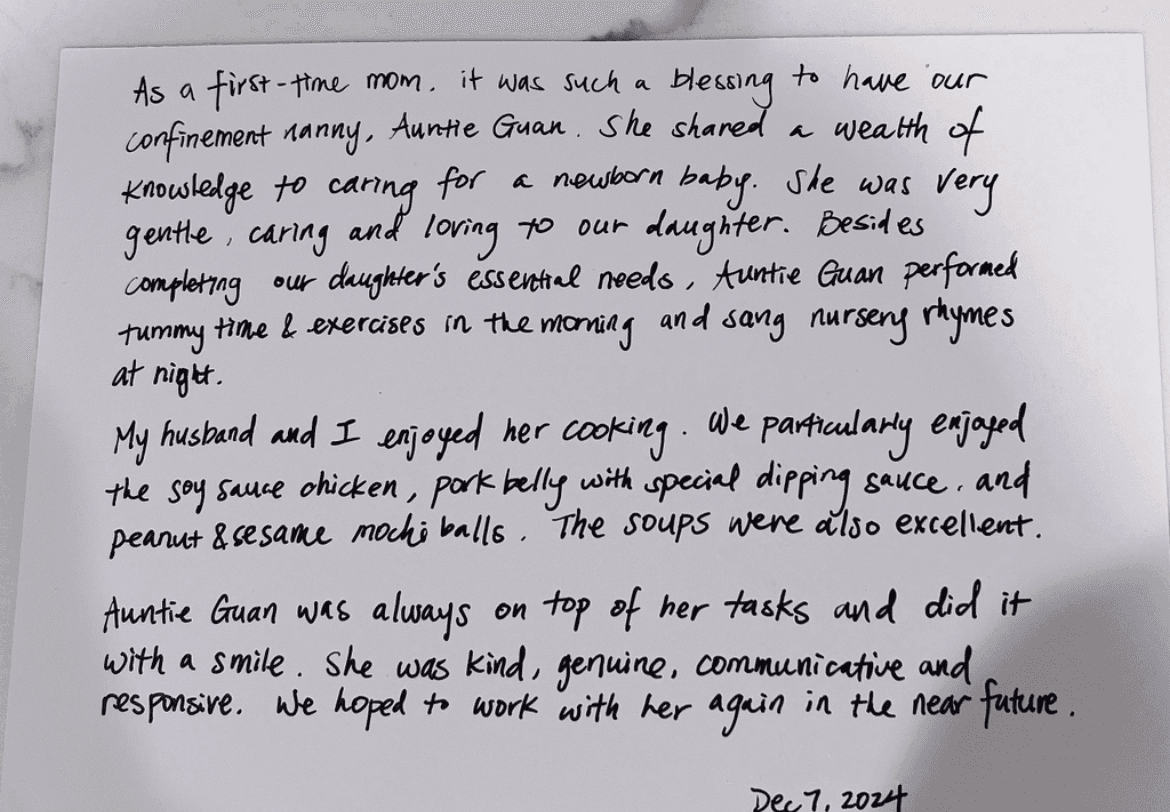 As a first-time mom, it was such a blessing to have our
confinement nanny, Auntie Guan. She shared a wealth of
knowledge to caring for a newborn baby. She was very
gentle, caring and loving to our daughter. Besides
completing our daughter's essential needs, Auntie Guan performed
tummy time & exercises in the morning and sang nursery rhymes
at night.
My husband and I enjoyed her cooking. We particularly enjoyed
the soy sauce chicken, pork belly with special dipping sauce, and
peanut & sesame mochi balls. The soups were also excellent.
Auntie Guan was always on top of her tasks and did it
with a smile. She was kind, genuine, communicative and
responsive. We hoped to work with her again in the near future.
Dec 7, 2024